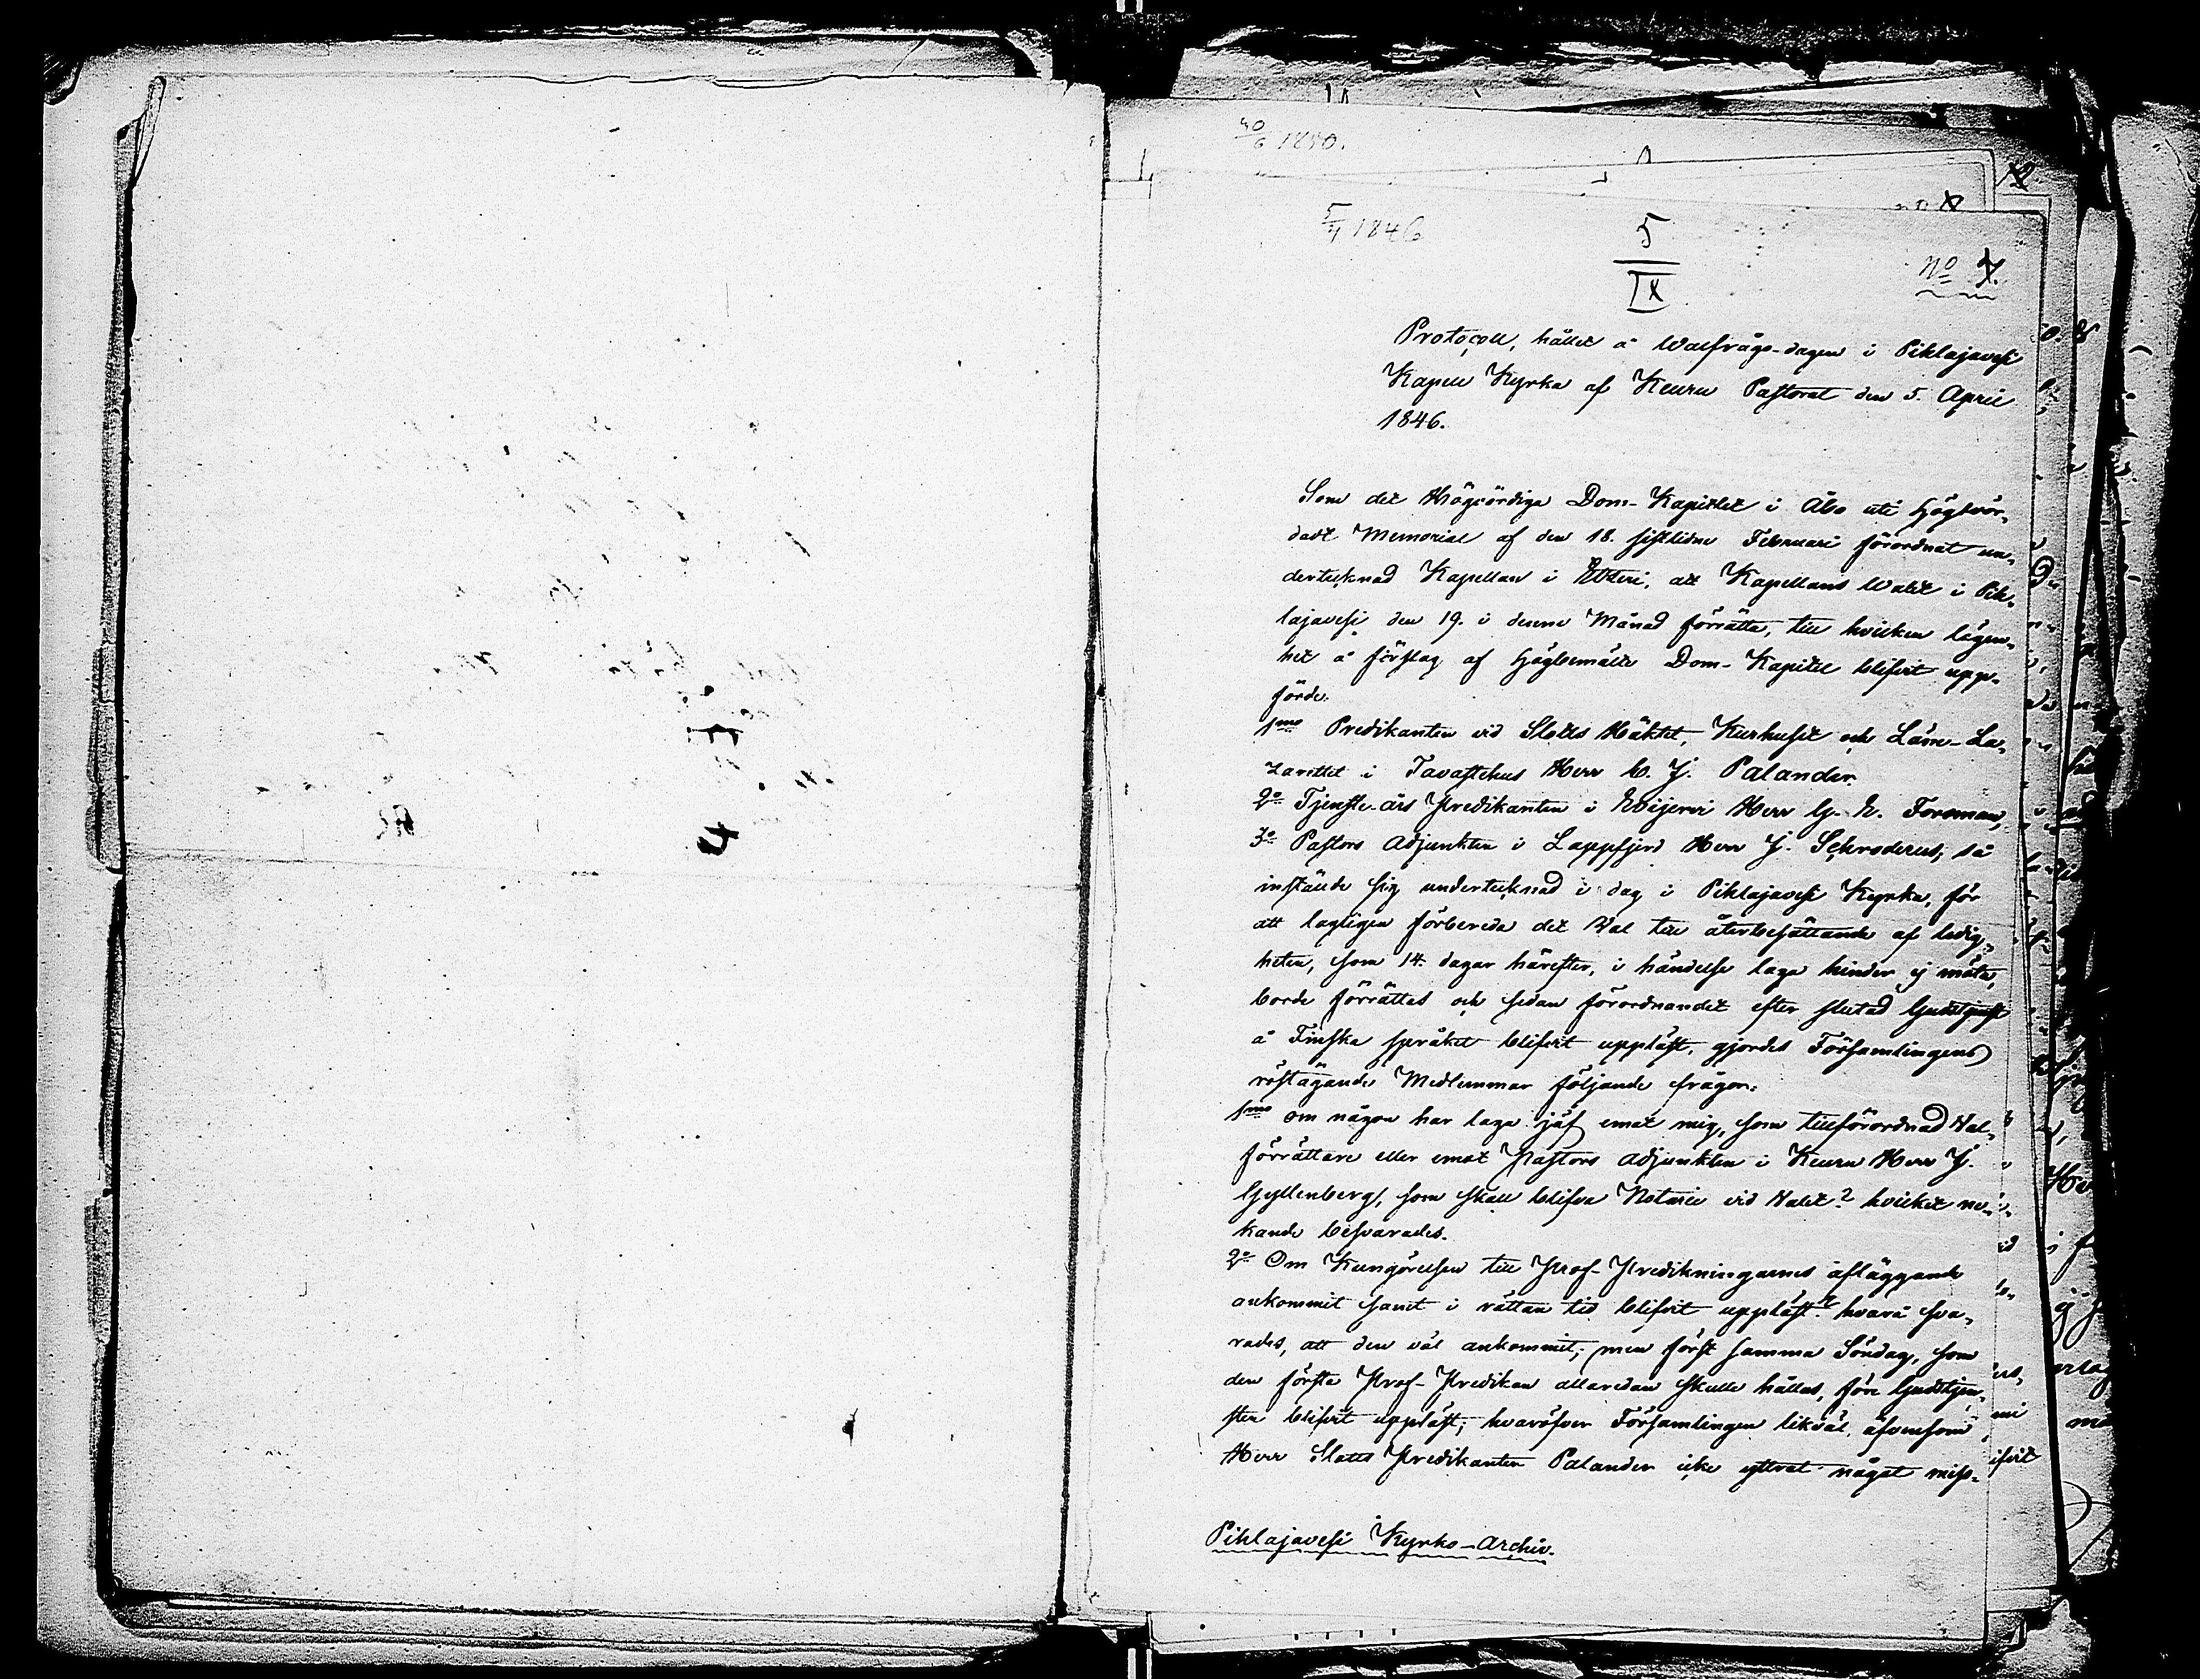 5/4 1846
5
IX
No 7.
Protocoll, hållit å Walfrågo-dagen i Pihlajavesi
Kapell Kyrka af Keuru Pastorat den 5. April
1846.
Som det Högvördiga Dom-Kapitlet i Åbo uti Högtvör-
dadt Memorial af den 18. sistlidne Februari förordnat un-
dertecknad Kapellan i Etseri, att Kapellans Valet i Pih-
lajavesi den 19. i denne Månad förrätta, till hvilken lägen-
het å förslag af Högbemälte Dom-Kapitel blifvit upp-
förde.
1mo Predikanten vid Slotts Häktet, Kurhuset och Läns-La-
zarettet i Tavastehus Herr C. J. Palander.
2o Tjenste-års Predikanten i Evijervi Herr G. E. Forsman,
3o Pastors Adjunkten i Lappfjerd Herr J. Schroderus; så
inställde sig undertecknad i dag i Pihlajavesi Kyrka, för
att lagligen förbereda det Val till återbesättande af ledig-
heten, som 14. dagar härefter, i händelse laga hinder ej möta,
borde förrättas och sedan förordnandet efter slutad Gudstjenst
å Finska språket blifvit uppläst, gjordes Församlingens
röstägande Medlemmar följande frågor:
1mo om någon har laga jäf emot mig, som tillförordnad Val-
förrättare eller emot Pastors Adjunkten i Keuru Herr J.
Gyllenberg, som skall blifva Notarie vid Valet? hvilket ne-
kande besvarades.
2o Om Kungörelsen till Prof-Predikningarnes afläggande
ankommit samt i rättan tid blifvit uppläst? hvarå sva-
rades, att den väl ankommit, men först samma Söndag, som
den första Prof-Predikan allaredan skulle hållas, före Gudstjen-
sten blifvit uppläst; hvaröfver Församlingen likväl, äfvensom
Herr Slotts Predikanten Palander icke yttrat något miss-
Pihlajavesi Kyrko-Archiv.